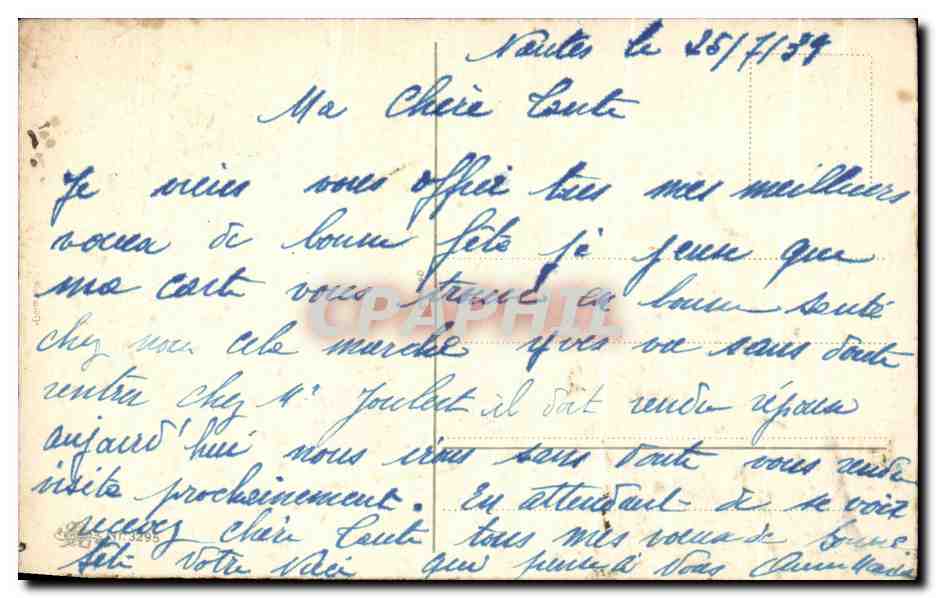 Nantes le 25/7/39
Ma Chère Tante
Je viens vous offrir tous mes meilleurs
voeux de bonne fête je pense que
ma carte vous trouve en bonne santé
CPAPHIL
chez nous cela marche Yves va sans doute
rentrer chez Mr Joubert il doit rendre réponse
aujourd'hui nous irons sans doute vous rendre
visite prochainement. En attendant de se voir
recevez chère Tante tous mes voeux de bonne
Nr. 3295
fête Votre Nièce qui pense à Vous Anne Marie